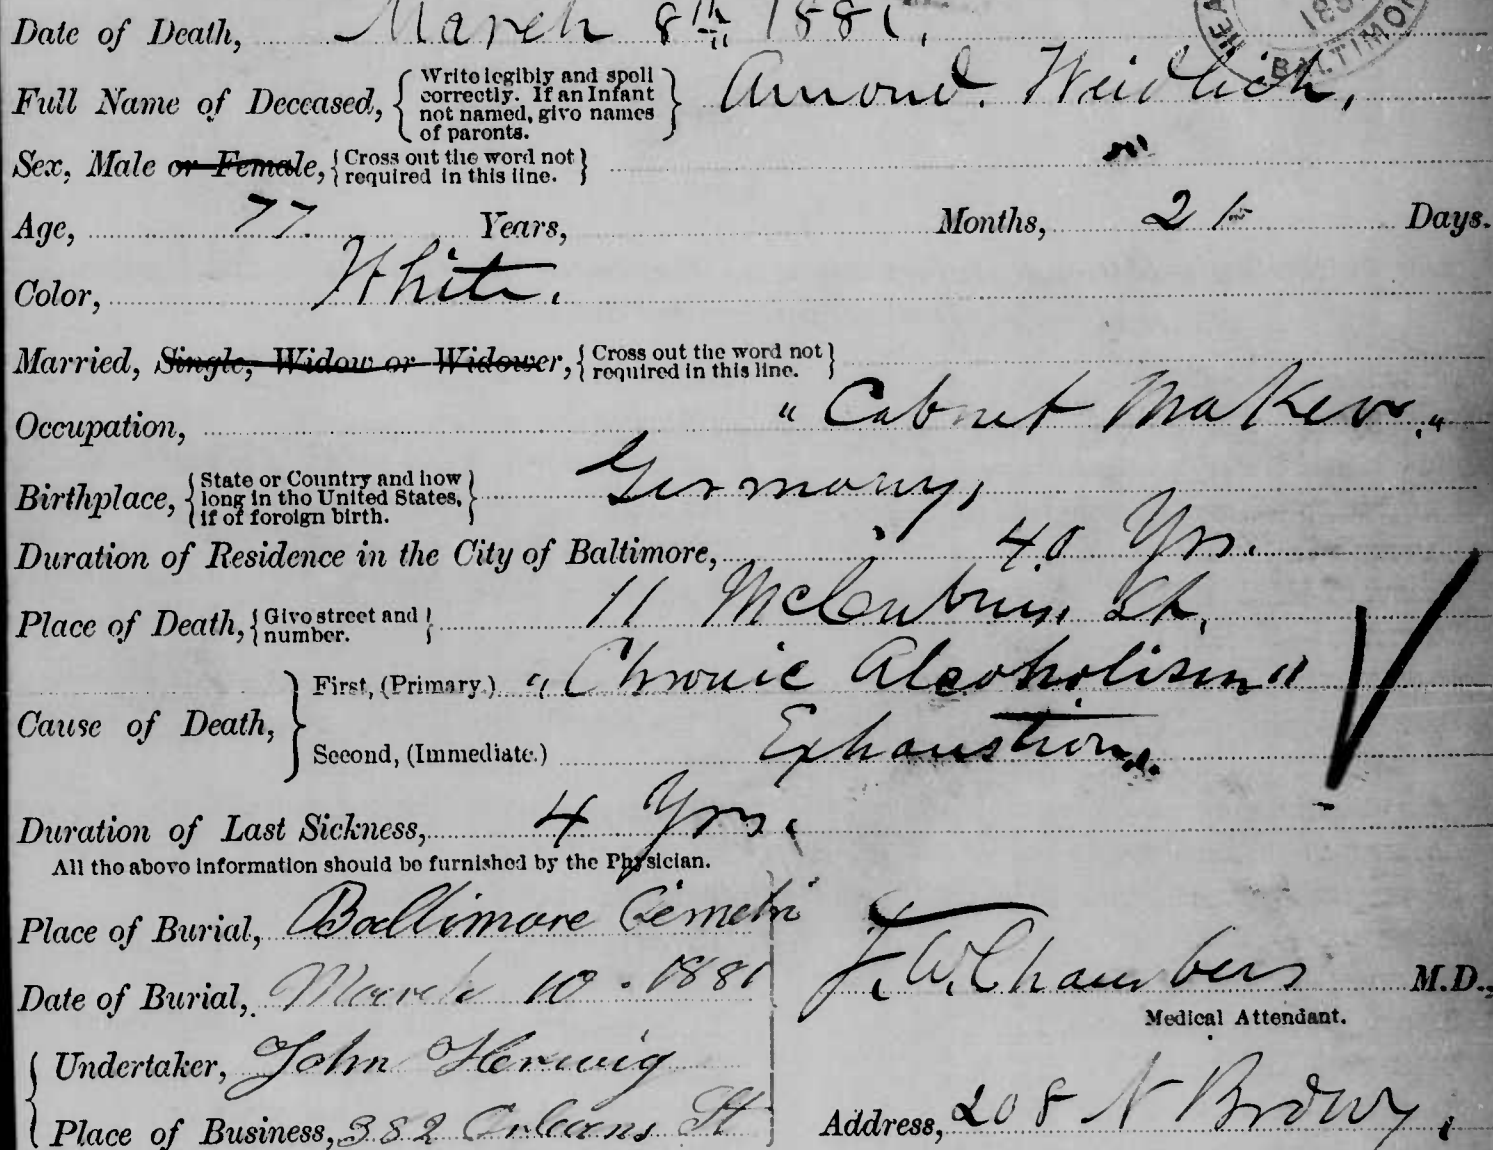 Date of Death, March 8th 1881.
Full Name of Deceased, { Write legibly and spell correctly. If an Infant not named, give names of parents. } Amond. Weidlich,
Sex, Male or Female, { Cross out the word not required in this line. } "
Age, 77. Years, Months, 21 Days.
Color, White.
Married, Single, Widow or Widower, { Cross out the word not required in this line. }
Occupation, "Cabnet Maker."
Birthplace, { State or Country and how long in the United States, if of foreign birth. } Germany,
Duration of Residence in the City of Baltimore, 40 Yrs.
Place of Death, { Give street and number. } 11 St,
Cause of Death, First, (Primary.) "Chronic Alcoholism"
Second, (Immediate.) Exhaustion.
Duration of Last Sickness, 4 Yrs.
All the above information should be furnished by the Physician.
Place of Burial, Baltimore Cemetr
Date of Burial, March 10. 1881
F. W. Chambers M.D.,
Medical Attendant.
Undertaker, John Herwig
Place of Business, 382 Orleans St
Address, 208 N Brdwy.
HEA
188
BALTIMOR